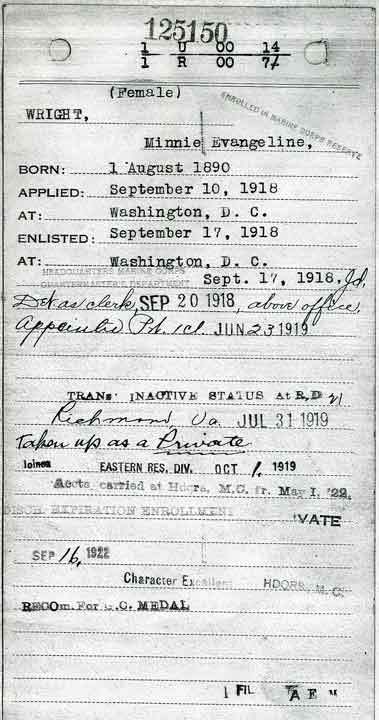 125150
1 U 00 14
1 R 00 7
(Female)
ENROLLED IN MARINE CORPS RESERVE
WRIGHT,
Minnie Evangeline,
BORN: 1 August 1890
APPLIED: September 10, 1918
AT: Washington, D. C.
ENLISTED: September 17, 1918
AT: Washington, D. C.
HEADQUARTERS MARINE CORPS
QUARTERMASTER'S DEPARTMENT Sept. 17, 1918, Jd.
Det as clerk, SEP 20 1918, above office.
Appointed Pvt. 1cl. JUN 23 1919
TRANS' INACTIVE STATUS At R.D 21
Richmond, Va JUL 31 1919
Taken up as a Private
Joined EASTERN RES. DIV. OCT 1, 1919
Accts carried at Hdqrs. M.C. fr. May 1, '22.
DISCH EXPIRATION ENROLLMENT
VATE
SEP 16, 1922
Character Excellent HDQRS, M. C.
RECOm. For G.C. MEDAL
1 FIL